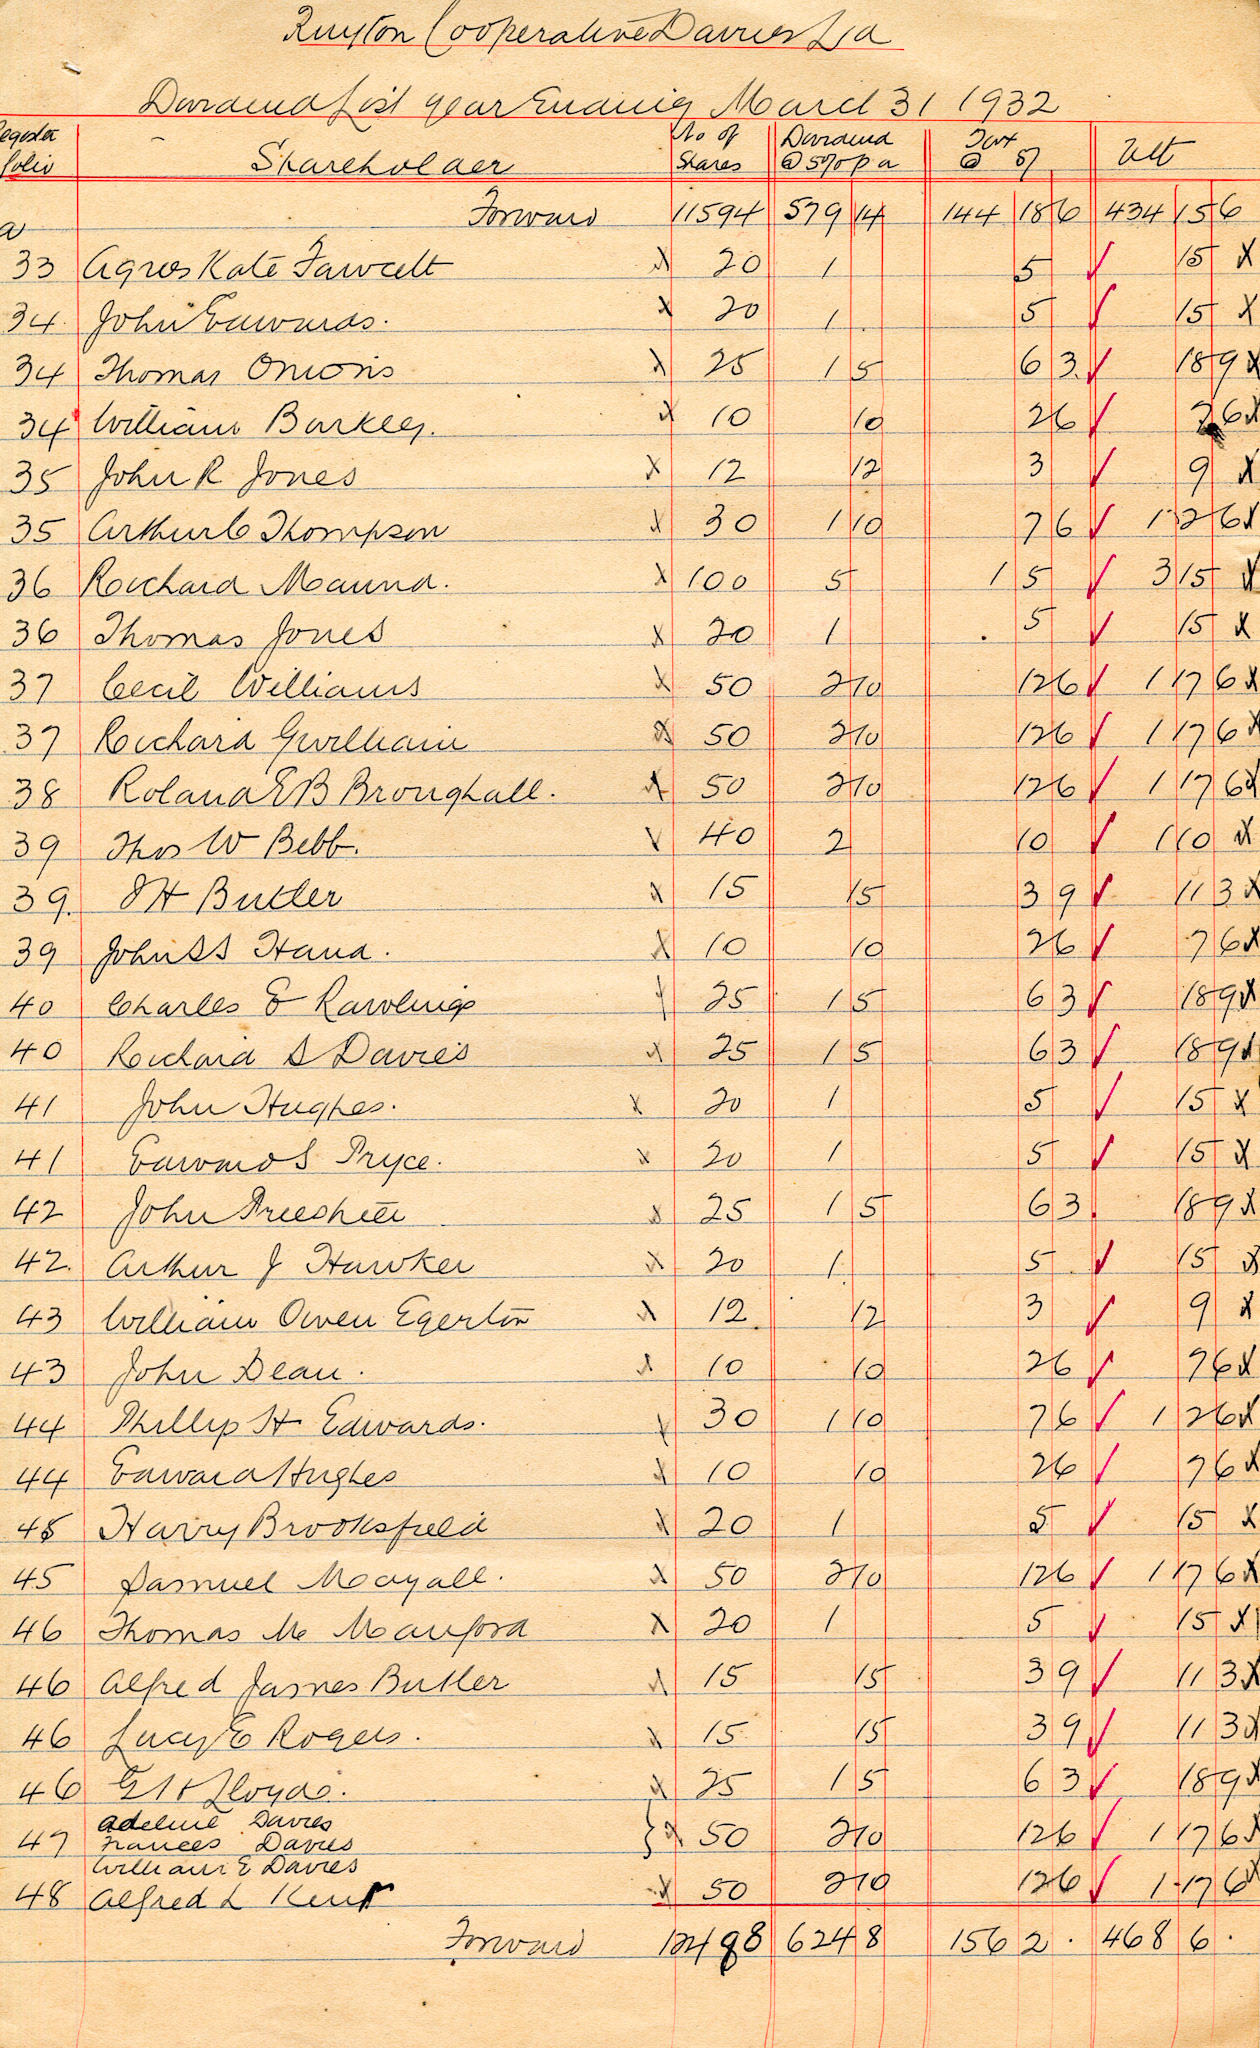 Ruyton Cooperative Dairies Ltd
Dividend List year Ending March 31 1932
Register folio Shareholder No of Shares Dividend @ 5% p a Tax @ 5/ Nett
Forward 11594 579 14 144 18 6 434 15 6
33 Agnes Kate Fawcett x 20 1 5 ✓ 15 x
34 John Edwards. x 20 1 5 ✓ 15 x
34 Thomas Onions x 25 1 5 6 3 ✓ 18 9 x
34 William Barkley. x 10 10 2 6 ✓ 7 6 x
35 John R Jones x 12 12 3 ✓ 9 x
35 Arthur C Thompson x 30 1 10 7 6 ✓ 1 2 6 x
36 Richard Maund. x 100 5 1 5 ✓ 3 15 x
36 Thomas Jones x 20 1 5 ✓ 15 x
37 Cecil Williams x 50 2 10 12 6 ✓ 1 17 6 x
37 Richard Gwilliam x 50 2 10 12 6 ✓ 1 17 6 x
38 Roland E B Broughall. x 50 2 10 12 6 ✓ 1 17 6 x
39 Thos W Bebb. x 40 2 10 ✓ 1 10 x
39. J H Butler x 15 15 3 9 ✓ 11 3 x
39 John S S Hand. x 10 10 2 6 ✓ 7 6 x
40 Charles E Rawlings x 25 1 5 6 3 ✓ 18 9 x
40 Richard S Davies x 25 1 5 6 3 ✓ 18 9 x
41 John Hughes. x 20 1 5 ✓ 15 x
41 Edward S Pryce. x 20 1 5 ✓ 15 x
42 John x 25 1 5 6 3 18 9 x
42. Arthur J Hawker x 20 1 5 ✓ 15 x
43 William Owen Egerton x 12 12 3 ✓ 9 x
43 John Dean. x 10 10 2 6 ✓ 7 6 x
44 Phillip H Edwards. x 30 1 10 7 6 ✓ 1 2 6 x
44 Edward Hughes x 10 10 2 6 ✓ 7 6 x
45 Harry Brooksfield x 20 1 5 ✓ 15 x
45 Samuel Mayall. x 50 2 10 12 6 ✓ 1 17 6 x
46 Thomas M Manford x 20 1 5 ✓ 15 x
46 Alfred James Butler x 15 15 3 9 ✓ 11 3 x
46 Lucy E Rogers. x 15 15 3 9 ✓ 11 3 x
46 G H Lloyd. x 25 1 5 6 3 ✓ 18 9 x
Adeline Davies
47 Frances Davies } x 50 2 10 12 6 ✓ 1 17 6 x
William E Davies
48 Alfred L Kent x 50 2 10 12 6 ✓ 1 17 6 x
Forward 12498 624 8 156 2 . 468 6 .